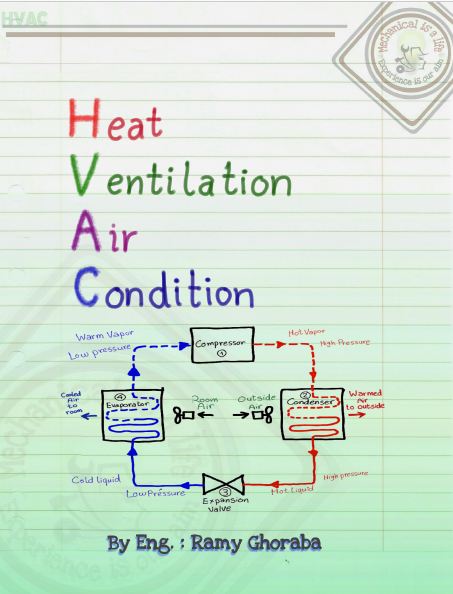 HVAC
Mechanical is a life
Experience is our aim
Heat
Ventilation
Air
Condition
Warm Vapor
Low pressure
Compressor
①
Hot Vapor
High Pressure
Cooled
Air
to
room
④
Evaporator
Room
Air
Outside
Air
②
Condenser
Warmed
air
to outside
Cold liquid
Low Pressure
③
Expansion
Valve
Hot Liquid
High pressure
By Eng. : Ramy Ghoraba